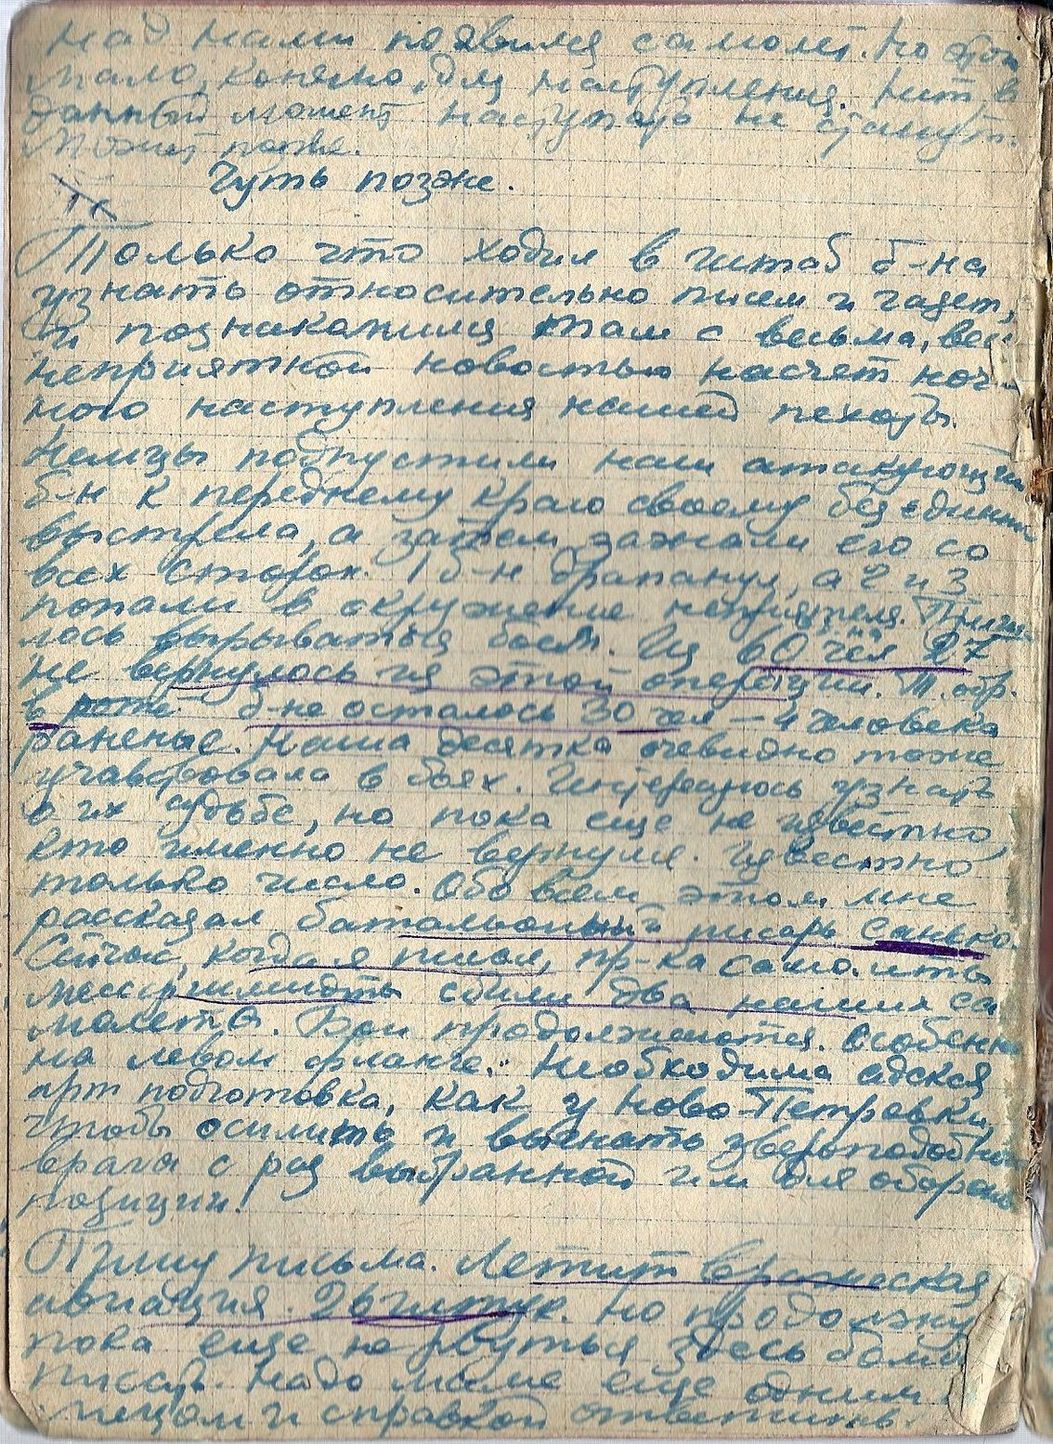 над нами появился самолет. Но этого
мало, конечно, для наступления. Нет, в
данный момент наступать не станут.
Может позже.
Чуть позже.
Только что ходил в штаб б-на
узнать относительно писем и газет,
и познакомился там с весьма, вес
неприятной новостью насчет ноч-
ного наступления нашей пехоты.
Немцы подпустили наш атакующий
б-н к переднему краю своему без единого
выстрела, а затем зажали его со
всех сторон. 1 б-н драпанул, а 2 и 3
попали в окружение неприятеля. Приш
лось вырываться боем. Из 60 чел 27
не вернулось из этой операции. Т. обр.
в роте б-на осталось 30 чел – 4 человека
раненые. Наша десятка очевидно тоже
участвовала в боях. Интересуюсь узнать
о их судьбе, но пока еще не известно
кто именно не вернулся. Известно
только число. Обо всем этом мне
рассказал батальонный писарь Санько.
Сейчас, когда я писал, пр-ка самолеты
мессершмидты сбили два наших са
молета. Бои продолжаются. Особенно
на левом фланге. Необходима адская
арт подготовка, как у Ново-Петровки,
чтобы осилить и выгнать звероподобного
врага с раз выбранной им для обороны
позиции.
Пишу письма. Летит вражеская
авиация. 26 штук. Но продолжу
пока еще не рвутся здесь бомбы
писать. Надо маме еще одним
письмом и справкой ответить.